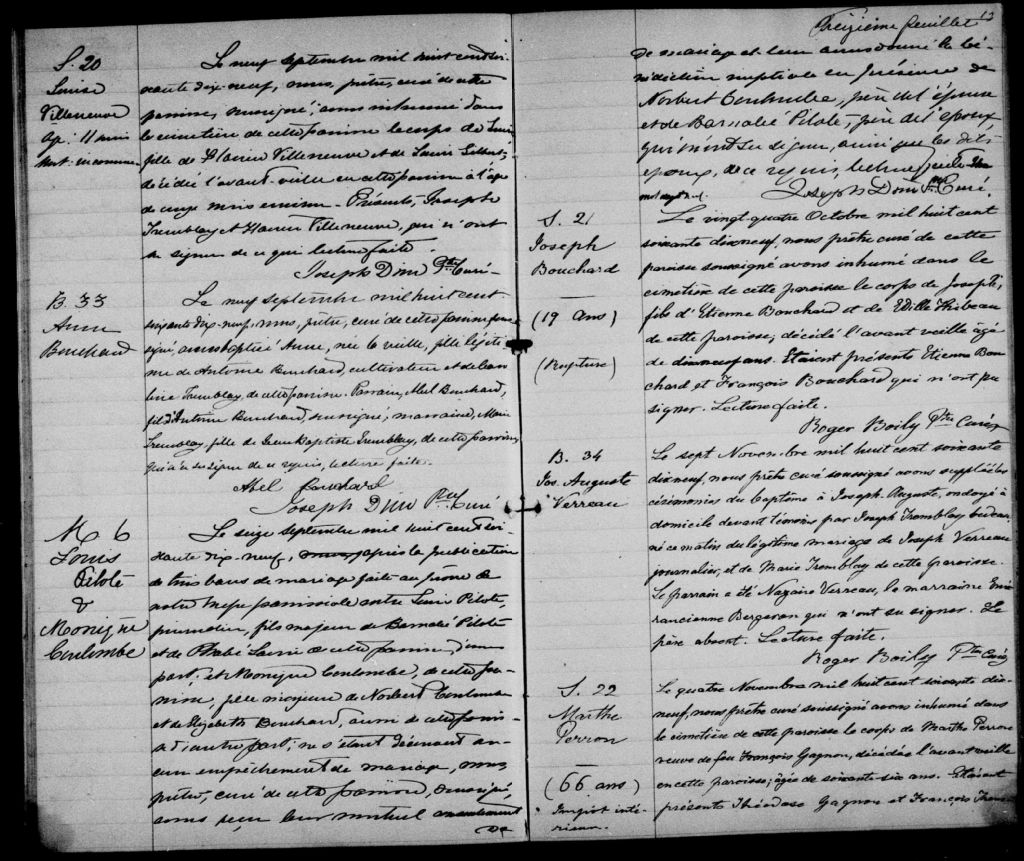 S. 20
Louise
Villeneuve
Ag. 11 mois
Mort. inconnue
Le neuf septembre mil huit cent soi-
xante dix-neuf, nous, prêtre, curé de cette
paroisse, soussigné, avons inhumé dans
le cimetière de cette paroisse le corps de
fille de Villeneuve et de
décédée l'avant-veille en cette paroisse à l'âge
de onze mois environ. Présents, Joseph
Tremblay et Villeneuve, qui n'ont
su signer de ce requis lecture faite.
Joseph Dion Ptre Curé
B. 33
Anne
Bouchard
Le neuf septembre mil huit cent
soixante dix-neuf, nous, prêtre, curé de cette paroisse sous-
signé, avons baptisé Anne, née la veille, fille légiti-
me de Antoine Bouchard, cultivateur et de
Tremblay, de cette paroisse. Parrain, Abel Bouchard,
fils d'Antoine Bouchard, soussigné, marraine, Marie
Tremblay, fille de Jean-Baptiste Tremblay, de cette paroisse,
qui n'a su signer de ce requis, lecture faite.
Abel Bouchard
Joseph Dion Ptre Curé
M 6
Louis
Pilote
&
Monique
Coulombe
Le seize septembre mil huit cent soi-
xante dix-neuf, après la publication
de trois bans de mariage faite au prône de
notre messe paroissiale entre Louis Pilote,
journalier, fils majeur de Barnabé Pilote
et de Phébé de cette paroisse d'une
part, et Monique Coulombe, de cette pa-
roisse, fille majeure de Norbert Coulombe
et de Elizabeth Bouchard, aussi de cette parois-
se d'autre part; ne s'étant découvert au-
cun empêchement de mariage, nous,
prêtre, curé de cette paroisse, soussigné,
avons reçu leur mutuel consentement
de
Treizième feuillet 13
de mariage et leur avons donné la bé-
nédiction nuptiale en présence de
Norbert Coulombe, père de l'épouse
et de Barnabé Pilote, père de l'époux,
qui n'ont su signer, ainsi que les dits
époux, de ce requis, lecture faite.
Joseph Dion Ptre Curé.
S. 21
Joseph
Bouchard
(19 ans)
(Rupture)
Le vingt-quatre Octobre mil huit cent
soixante dixneuf, nous prêtre curé de cette
paroisse soussigné avons inhumé dans le
cimetière de cette paroisse le corps de Joseph,
fils d'Etienne Bouchard et de Thibeau
de cette paroisse; décédé l'avant veille âgé
de dixneuf ans. Etaient présents Etienne Bou-
chard et François Bouchard qui n'ont pu
signer. Lecture faite.
Roger Boily Ptre Curé
B. 34
Jos. Auguste
Verreau
Le sept Novembre mil huit cent soixante
dixneuf, nous prêtre curé soussigné avons suppléé les
cérémonies du baptême à Joseph Auguste, ondoyé à
domicile devant témoins par Joseph Tremblay bedeau,
né ce matin du légitime mariage de Joseph Verreau
journalier, et de Marie Tremblay de cette paroisse.
Le parrain a été Nazaire Verreau, la marraine Emé-
rancienne Bergeron qui n'ont su signer. Le
père absent. Lecture faite.
Roger Boily Ptre Curé
S. 22
Marthe
Perron
(66 ans)
Le quatre Novembre mil huit cent soixante dix-
neuf, nous prêtre curé soussigné avons inhumé dans
le cimetière de cette paroisse le corps de Marthe Perron
veuve de feu François Gagnon, décédée l'avant veille
en cette paroisse; âgée de soixante six ans. Etaient
présents Théodose Gagnon et François